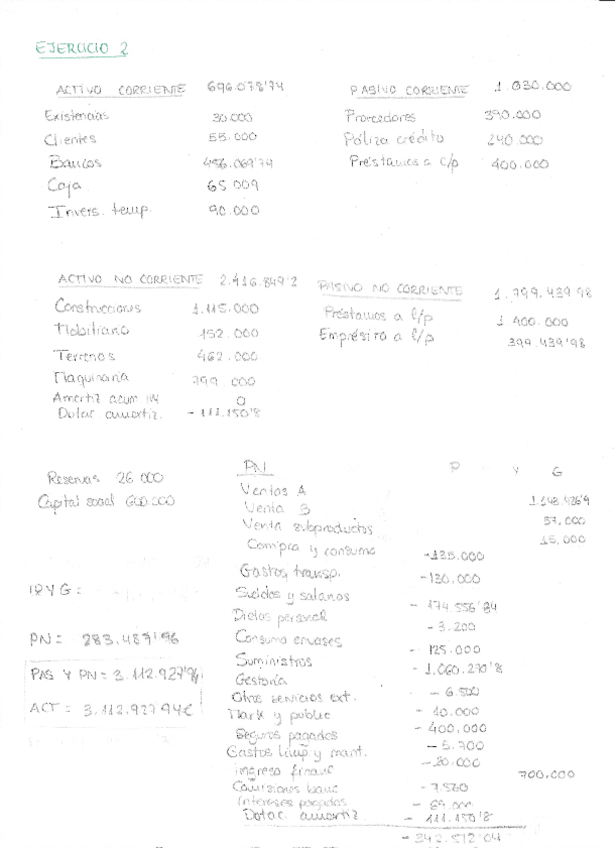 EJERCICIO 2
ACTIVO CORRIENTE 696.078'74
Existencias 30.000
Clientes 55.000
Bancos 456.069'74
Caja 65.009
Invers. temp. 90.000
PASIVO CORRIENTE 1.030.000
Proveedores 390.000
Póliza crédito 240.000
Préstamos a c/p 400.000
ACTIVO NO CORRIENTE 2.416.849'2
Construcciones 1.115.000
Mobiliario 152.000
Terrenos 462.000
Maquinaria 799.000
Amortiz acum 0
Dotac amortiz. - 111.150'8
PASIVO NO CORRIENTE 1.799.439'98
Préstamos a l/p 1 400.000
Empréstito a l/p 399.439'98
Reservas 26 000
Capital social 600.000
PN =  283.487'96
PAS Y PN = 3.112.927'94
ACT = 3.112.927'94€
PN P Y G
Ventas A 1.148.426'9
Venta B 57.000
Venta subproductos 15.000
Compra y consumo -135.000
Gastos transp. -130.000
Sueldos y salarios - 174.556'84
Dietas personal - 3.200
Consumo envases - 125.000
Suministros - 1.060.270'8
Gestoría - 6.500
Otros servicios ext. - 10.000
Mark y public - 400.000
Seguros pagados - 5.700
Gastos limp y mant. - 20.000
Ingreso financ 700.000
Comisiones banc - 7.560
Intereses pagados - 89.000
Dotac. amortiz - 111.150'8
- 342.512'04